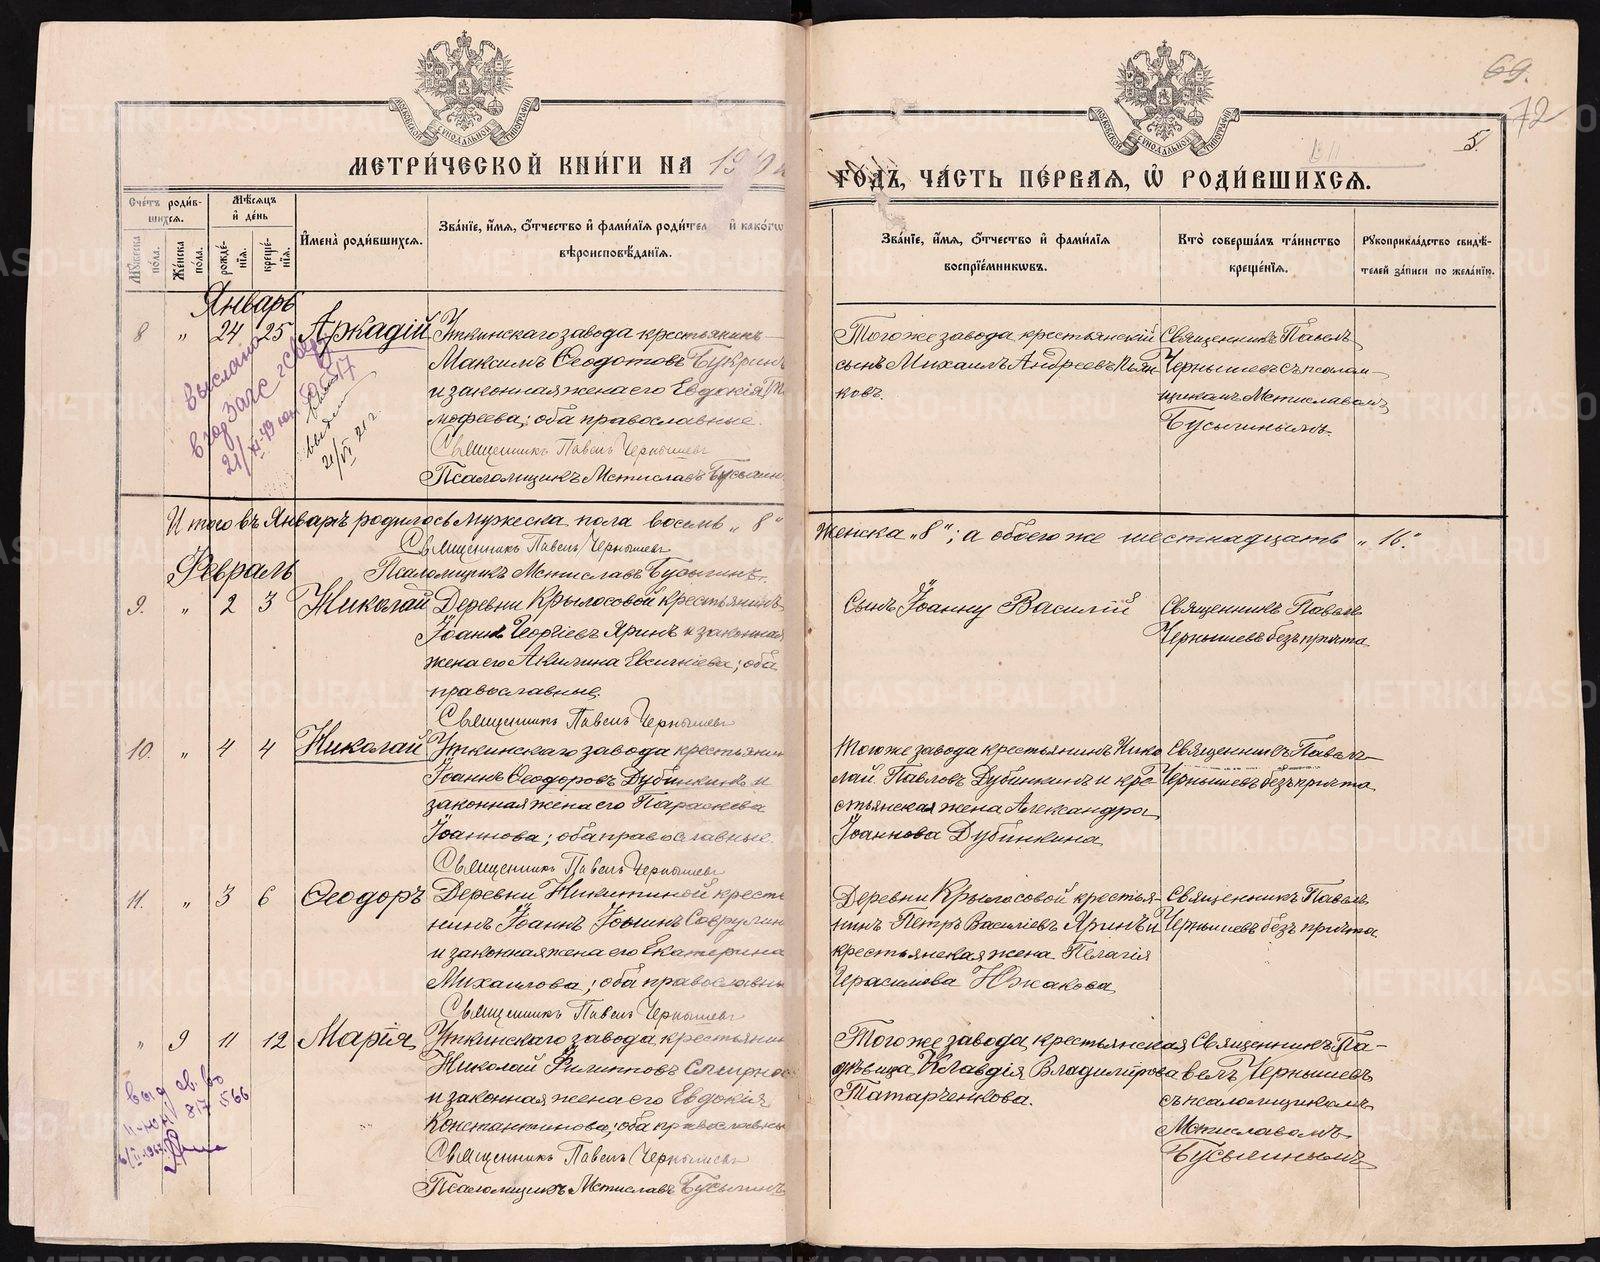 69.
72
5.
МОСКОВСКОЙ СѴНОДАЛЬНОЙ ТИПОГРАФІИ
МОСКОВСКОЙ СѴНОДАЛЬНОЙ ТИПОГРАФІИ
МЕТРИ́ЧЕСКОЙ КНИ́ГИ НА 19
ГОДЪ, ЧА́СТЬ ПЕ́РВАЯ, Ѡ҆ РОДИ́ВШИХСЯ.
Сче́тъ роди́в-
шихся.
Мꙋ́жеска по́ла.
Же́нска по́ла.
Мѣ́сяцъ и҆ де́нь
рожде́-
нїя.
креще́-
нїя.
И҆мена̀ роди́вшихся.
Зва́нїе, и҆́мя, ѻ҆́тчество и҆ фами́лїя роди́тел и҆ како́гѡ
вѣроисповѣ́данїя.
Зва́нїе, и҆́мя, ѻ҆́тчество и҆ фами́лїя
воспрїе́мникѡвъ.
Кто̀ соверша́лъ та́инство
креще́нїя.
Рꙋкоприкла́дство свидѣ́-
телей за́писи по жела́нїю.
Январь
8 " 24 25 Аркадій
Уткинскаго завода крестьянинъ
Максимъ Ѳеодотовъ Букрин
и законная жена его Евдокія Ти
мофеева; оба православные.
Священникъ Павелъ Чернышевъ
Псаломщикъ Мстиславъ Бусыгин
Того же завода крестьянскій
сынъ Михаилъ Андреевъ Пьян
ковъ.
Священникъ Павелъ
Чернышевъ съ псалом-
щикомъ Мстиславомъ
Бусыгинымъ.
выслано
в гор ЗАГС г Сверд
21/
21/VI 21 г.
Итого въ Январѣ родилось мужеска пола восемь „8"
женска „8"; а обоего же шестнадцать „16".
Священникъ Павелъ Чернышевъ
Псаломщикъ Мстиславъ Бусыгинъ.
Февраль
9. " 2 3 Николай
Деревни Крылосовой крестьянинъ
Іоаннъ Георгіевъ Яринъ и законная
жена его Акилина Евсигніева; оба
православные.
Священникъ Павелъ Чернышевъ
Сынъ Іоанну Василій
Священникъ Павелъ
Чернышевъ безъ причта
10. " 4 4 Николай
Уткинскаго завода крестьянин
Іоаннъ Ѳеодоровъ Дубинкинъ и
законная жена его Параскева
Іоаннова; оба православные.
Священникъ Павелъ Чернышевъ
Того же завода крестьянинъ Нико
лай Павловъ Дубинкинъ и кре-
стьянская жена Александра
Іоаннова Дубинкина
Священникъ Павелъ
Чернышевъ безъ причта
11. " 3 6 Ѳеодоръ
Деревни Никитиной кресть
нинъ Іоаннъ Іонинъ Саврулин
и законная жена его Екатерина
Михаилова; оба православны
Священникъ Павелъ Чернышевъ
Деревни Крылосовой крестья-
нинъ Петръ Василіевъ Яринъ и
крестьянская жена Пелагія
Герасимова Южакова
Священникъ Павелъ
Чернышевъ безъ причта.
" 9 11 12 Марія
Уткинскаго завода крестьянин
Николай Филипповъ Смирнов
и законная жена его Евдокія
Константинова; оба православны
Священникъ Павелъ Чернышевъ
Псаломщикъ Мстиславъ Бусыгинъ
Того же завода крестьянская
дѣвица Клавдія Владимірова
Татарченкова.
Священникъ Па-
велъ Чернышевъ
съ псаломщикомъ
Мстиславомъ
Бусыгинымъ
выд св. во
II-ЮИ 817566
METRIKI.GASO-URAL.RU